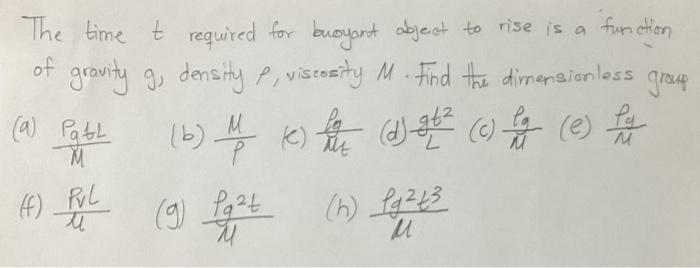 The time t required for buoyant object to rise is a function
of gravity g, density ρ, viscosity M. Find the dimensionless group
(a) ρgtL/M (b) M/ρ (c) ρg/Mt (d) gt²/L (c) ρg/M (e) ρg/M
(f) ρvL/M (g) ρg²t/M (h) ρg²t³/M